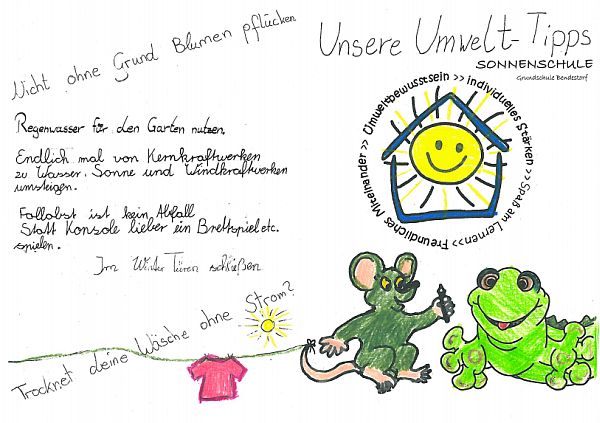 Nicht ohne Grund Blumen pflücken
Regenwasser für den Garten nutzen.
Endlich mal von Kernkraftwerken
zu Wasser, Sonne und Windkraftwerken
umsteigen.
Fallobst ist kein Abfall
Statt Konsole lieber ein Brettspiel etc.
spielen.
Im Winter Türen schließen
Trocknet deine Wäsche ohne Strom?
Unsere Umwelt-Tipps
SONNENSCHULE
Grundschule Bendestorf
Umweltbewusstsein >> individuelles Stärken >> Spaß am Lernen >> Freundliches Miteinander >>